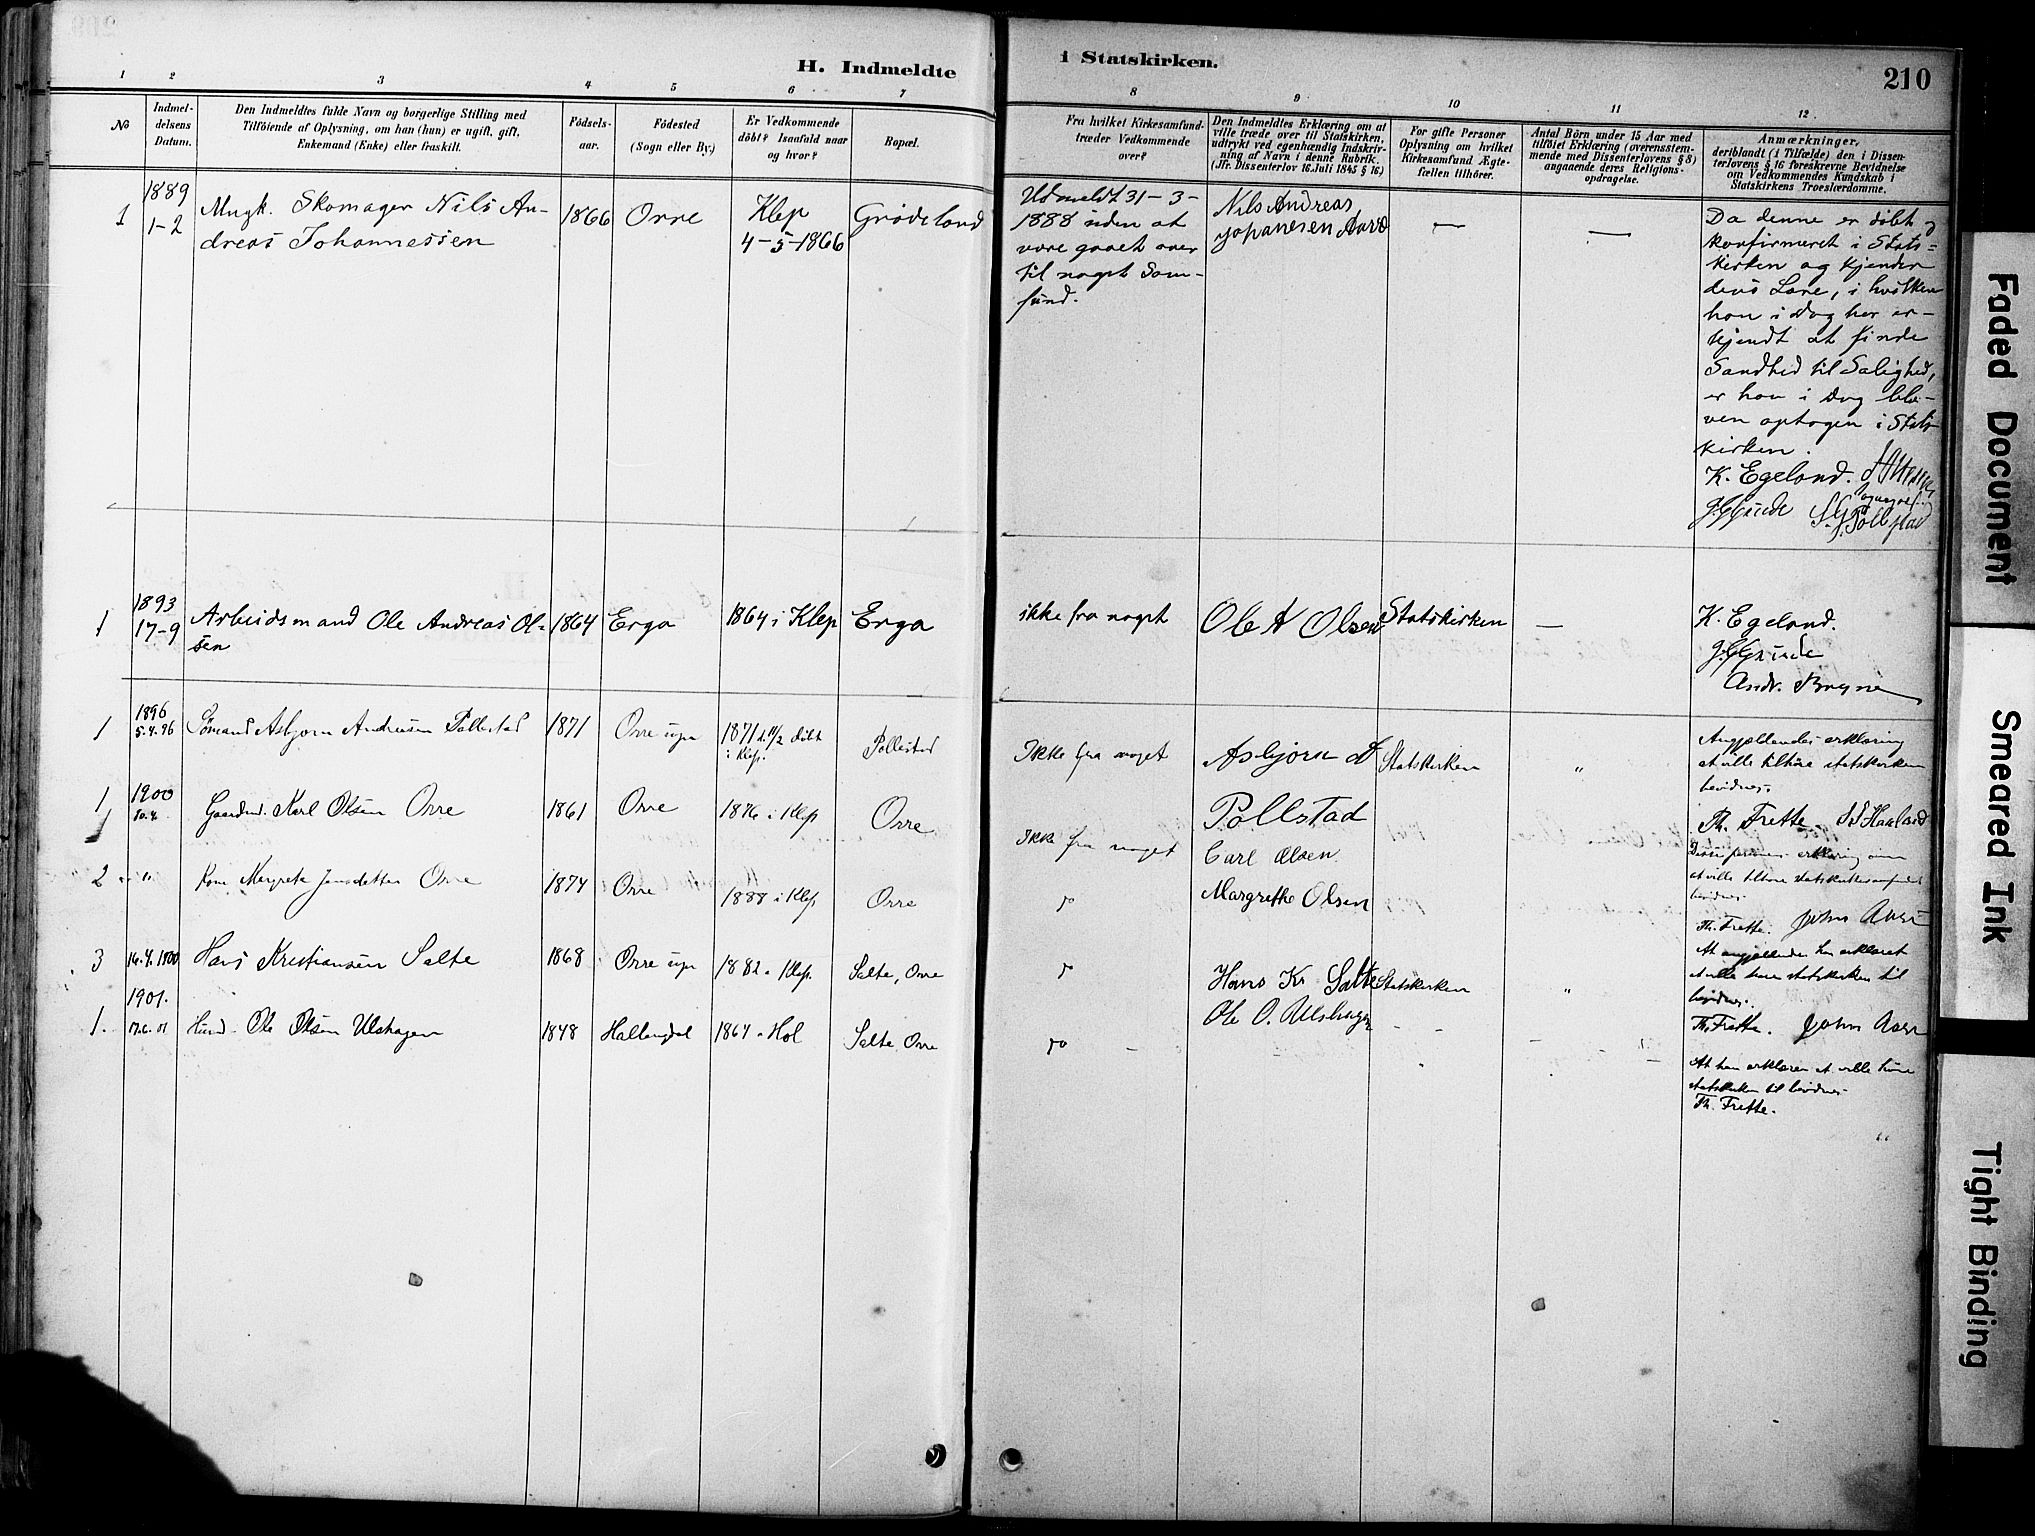 H. Indmeldte
i Statskirken.
210
1 2 3 4 5 6 7
8 9 10 11 12
No
Indmel-
delsens
Datum.
Den Indmeldtes fulde Navn og borgerlige Stilling med
Tilföiende af Oplysning, om han (hun) er ugift, gift,
Enkemand (Enke) eller fraskilt.
Födsels-
aar.
Födested
(Sogn eller By.)
Er Vedkommende
döbt? Isaafald naar
og hvor?
Bopæl.
Fra hvilket Kirkesamfund
træder Vedkommende
over?
Den Indmeldtes Erklæring om at
ville træde over til Statskirken,
udtrykt ved egenhændig Indskriv-
ning af Navn i denne Rubrik.
(Jfr. Dissenterlov 16. Juli 1845 § 16.)
For gifte Personer
Oplysning om hvilket
Kirkesamfund Ægte-
fællen tilhörer.
Antal Börn under 15 Aar med
tilföiet Erklæring (overensstem-
mende med Dissenterlovens § 8)
angaaende deres Religions-
opdragelse.
Anmærkninger,
deriblandt (i Tilfælde) den i Dissen-
terlovens § 16 foreskrevne Bevidnelse
om Vedkommendes Kundskab i
Statskirkens Troeslærdomme.
1
1889
1-2
Ungk. Skomager Nils An-
dreas Johannessen
1866
Orre
Klep
4-5-1866
Grødeland
Udmeldt 31-3-
1888 uden at
være gaaet over
til noget Sam-
fund.
Nils Andreas
Johanesen
—
—
Da denne er døbt
konfirmeret i Stats-
kirken og kjender
dens Lære, i hvilken
han i Dag har er-
kjendt at finde
Sandhed til Salighed,
er han i Dag ble-
ven optagen i Stats
kirken.
K. Egeland.
1
1893
17-9
Arbeidsmand Ole Andreas Ol-
sen
1864
Erga
1864 i Klep
Erga
ikke fra noget
Ole A Olsen
Statskirken
—
K. Egeland.
Andr. Bryne
1
1896
5.4.96
Sømand Asbjørn Andreasen Pollestad
1871
Orre sogn
1871 døbt
i Klep.
Pollestad
Ikke fra noget
Asbjørn A
Pollstad
Statskirken
"
Angjældendes erklæring
at ville tilhøre statskirken
bevidnes.
Th. Frette.
1
1900
Gaardm. Karl Olsen Orre
1861
Orre
1876 i Klep
Orre
Ikke fra noget
Carl Olsen
2
"
Kone Margrete Jensdatter Orre
1874
Orre
1888 i Klep
Orre
do
Margrethe Olsen
Th. Frette.
3
16.4.1900
Hans Kristiansen Salte
1868
Orre sogn
1882 i Klep.
Salte, Orre
do
Hans Kr Salte
Statskirken
"
At angjældende har erklæret
at ville høre statskirken til
bevidnes.
Th. Frette.
1.
1901.
Ole Olsen Ulshagen
1848
Hallingdal
1864 i Hol
Salte, Orre
do
Ole O. Ulshagen
At han erklærer at ville høre
statskirken til bevidnes
Th. Frette.
Faded Document
Smeared Ink
Tight Binding